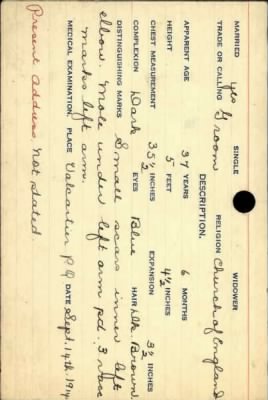 MARRIED yes SINGLE WIDOWER
TRADE OR CALLING Groom RELIGION Church of England
DESCRIPTION.
APPARENT AGE 37 YEARS 6 MONTHS
HEIGHT 5 FEET 4½ INCHES
CHEST MEASUREMENT 35½ INCHES EXPANSION 3½ INCHES
COMPLEXION Dark EYES Blue HAIR Dk. Brown
DISTINGUISHING MARKS Small scars inner left
elbow. Mole under left arm pd. 3 vacc
marks left arm
MEDICAL EXAMINATION. PLACE Valcartier P Q DATE Sept. 14th 191
Present Address not stated